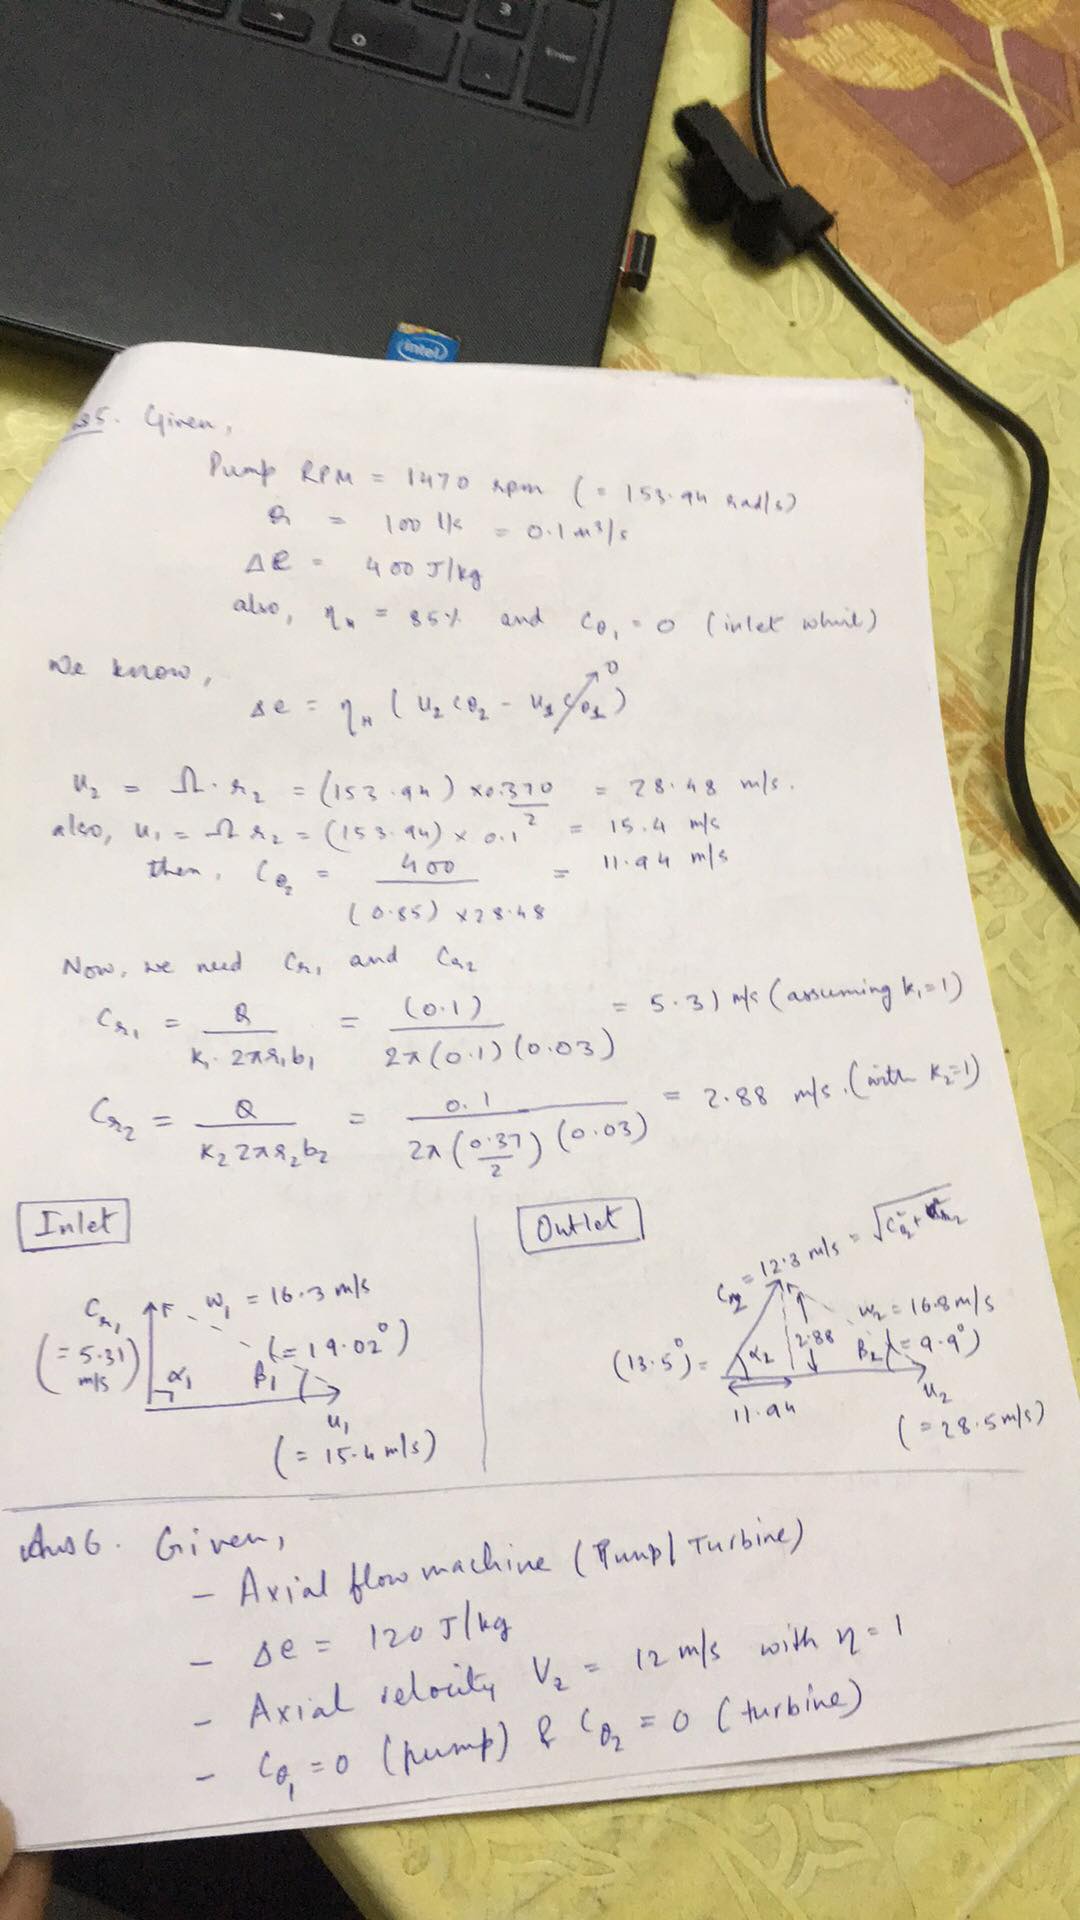 3
Enter
intel
Q5. Given,
Pump RPM = 1470 rpm (= 153.94 rad/s)
Q = 100 l/s = 0.1 m³/s
Δe = 400 J/kg
also, η_H = 85% and Cθ₁ = 0 (inlet whirl)
We know,
Δe = η_H (U₂Cθ₂ - U₁Cθ₁) 0
U₂ = Ω·r₂ = (153.94) × 0.370/2 = 28.48 m/s.
also, U₁ = Ω r₂ = (153.94) × 0.1 = 15.4 m/s
then, Cθ₂ = 400 / (0.85) × 28.48 = 11.94 m/s
Now, we need Cr₁ and Cr₂
Cr₁ = Q / K₁·2πr₁b₁ = (0.1) / 2π(0.1)(0.03) = 5.31 m/s (assuming K₁=1)
Cr₂ = Q / K₂2πr₂b₂ = 0.1 / 2π(0.37/2)(0.03) = 2.88 m/s. (with K₂=1)
Inlet
Cr₁ (= 5.31 m/s) W₁ = 16.3 m/s
α₁ β₁ (= 19.02°)
U₁
(= 15.4 m/s)
Outlet
= 12.3 m/s =
W₂ = 16.8 m/s
(13.5°) = α₂ 2.88 β₂ (= 9.9°)
11.94 U₂
(= 28.5 m/s)
Ans 6. Given,
- Axial flow machine (Pump/Turbine)
- Δe = 120 J/kg
- Axial velocity V₂ = 12 m/s with η = 1
- Cθ₁ = 0 (pump) & Cθ₂ = 0 (turbine)